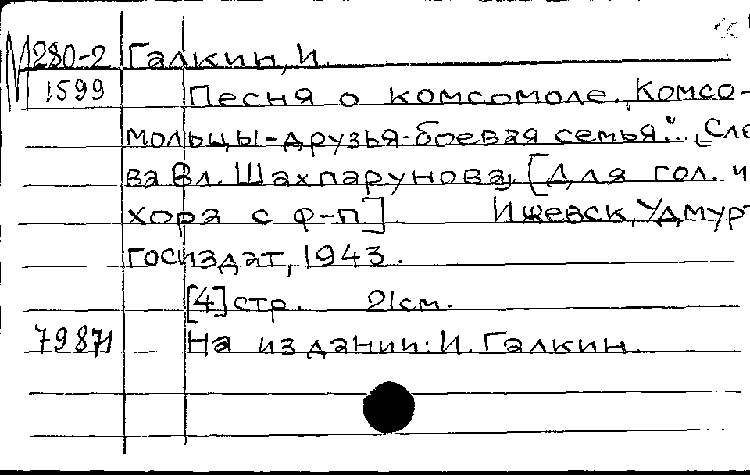 М280-2 Галкин, И.
1599 Песня о комсомоле. „Комсо-
мольцы-друзья-боевая семья."... [Сло
ва Вл. Шахпарунова]. [Для гол. и
хора с ф-п] Ижевск, Удмурт
госиздат, 1943.
[4] стр. 21 см.
79871 На издании: И. Галкин.